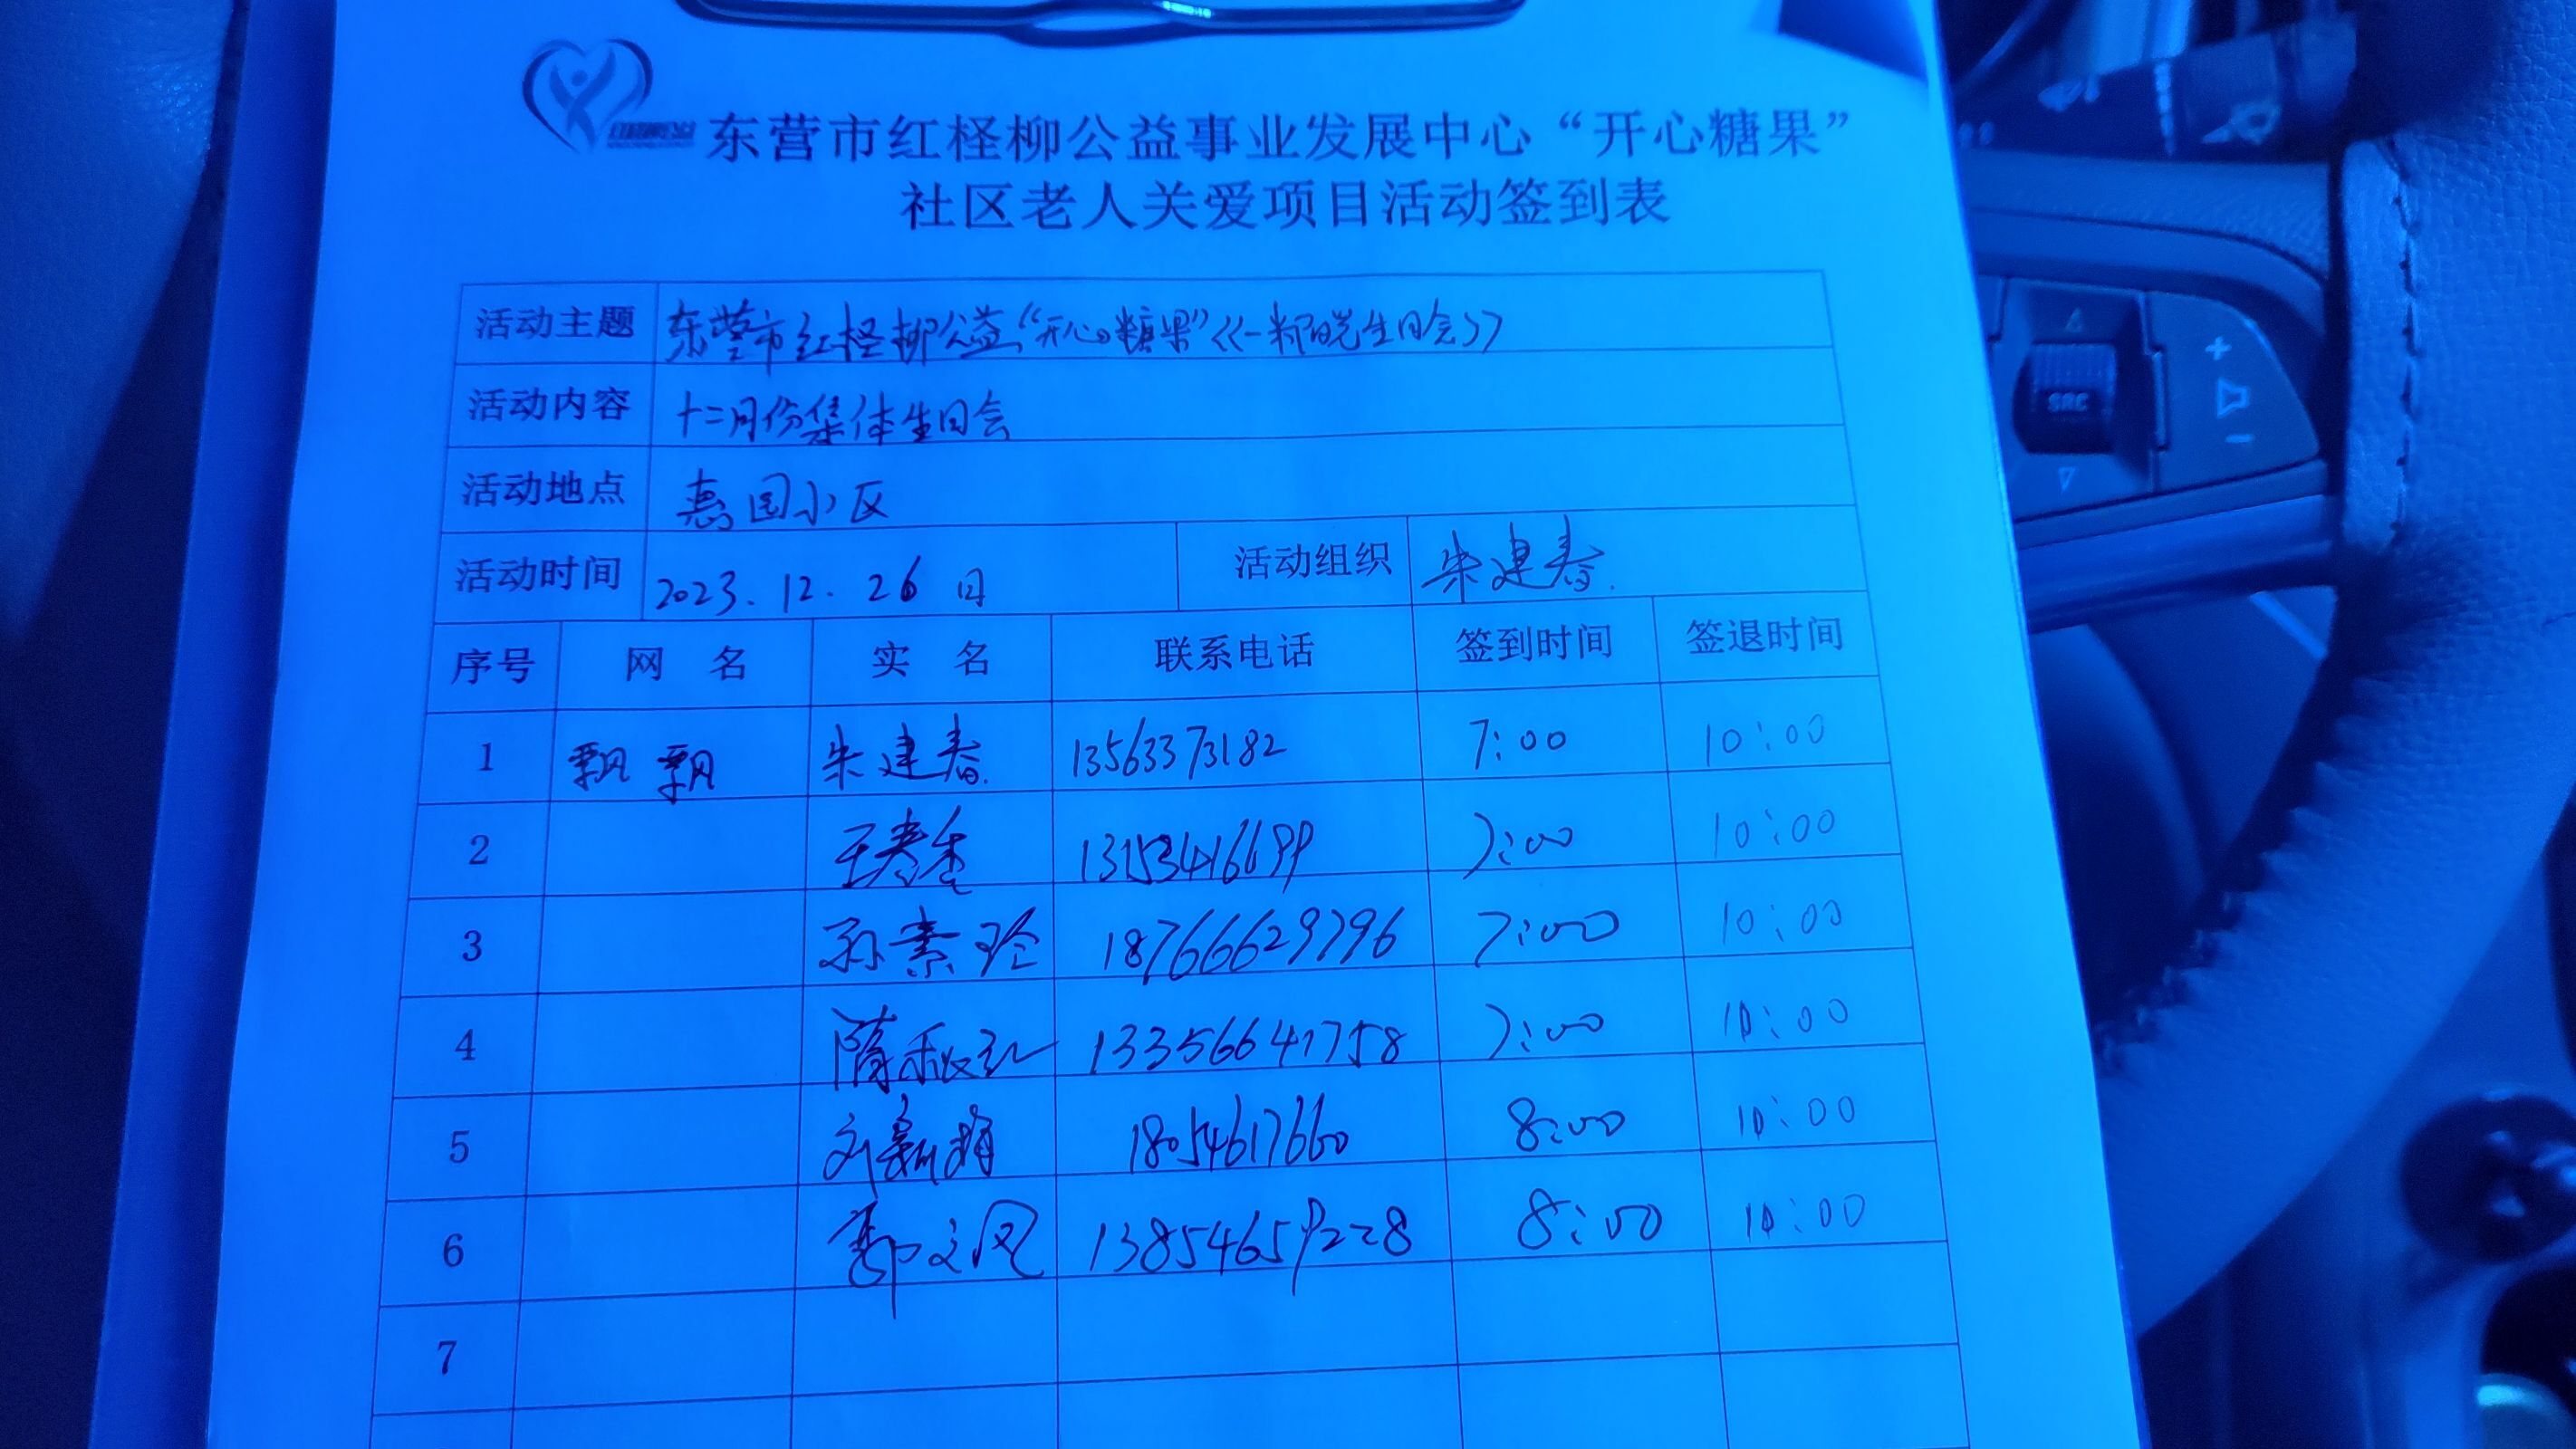 东营市红柽柳公益事业发展中心“开心糖果”
社区老人关爱项目活动签到表
活动主题 东营市红柽柳公益“开心糖果”《一杯一生日会》
活动内容 十二月份集体生日会
活动地点 惠园小区
活动时间 2023.12.26日 活动组织 朱建春.
序号 网 名 实 名 联系电话 签到时间 签退时间
1 飘飘 朱建春. 13563373182 7:00 10:00
2 王春香 13153416699 7:00 10:00
3 孙素玲 18766629796 7:00 10:00
4 隋秋红 13356641758 7:00 10:00
5 刘新娟 18054617660 8:00 10:00
6 郭文凤 13854659228 8:00 10:00
7
SRC
+
-